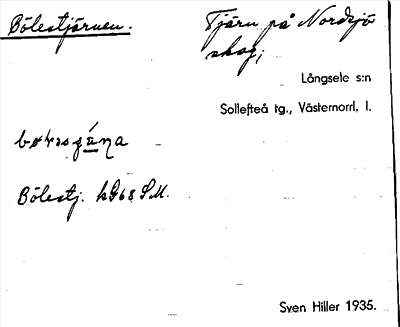 Bölestjärnen.
Tjärn på Nordsjö
skog;
Långsele s:n
Sollefteå tg., Västernorrl. l.
Bölestj. S.M.
Sven Hiller 1935.